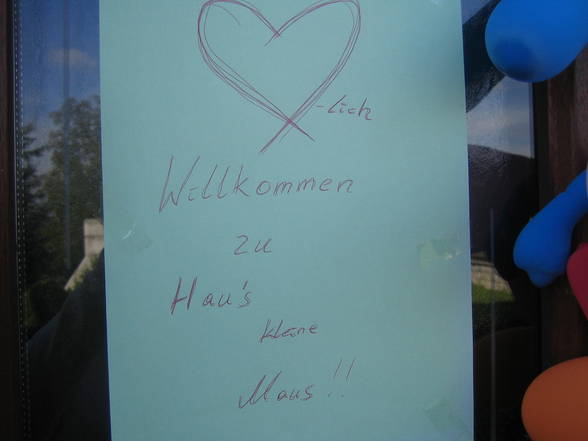 -lich
Willkommen
zu
Hau's
kleine
Maus!!